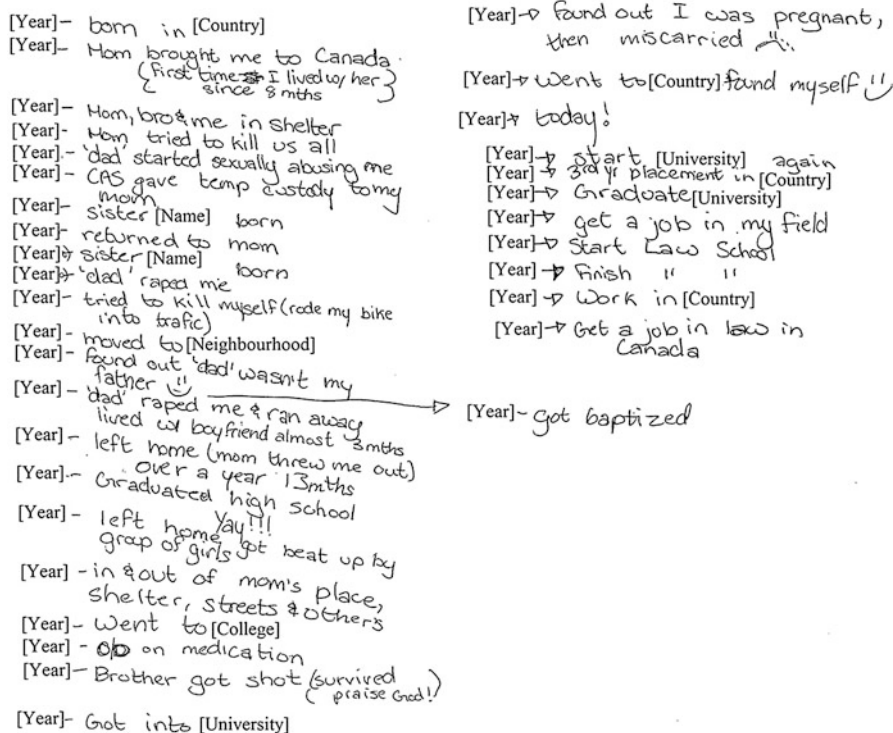 [Year]- born in [Country]
[Year]- Mom brought me to Canada.
(first time I lived w/ her
since 8 mths)
[Year]- Mom, bro & me in shelter
[Year]- Mom tried to kill us all
[Year]- 'dad' started sexually abusing me
[Year]- CAS gave temp custody to my
mom
[Year]- sister [Name] born
[Year]- returned to mom
[Year]→ sister [Name] born
[Year]→ 'dad' raped me
[Year]- tried to kill myself (rode my bike
into trafic)
[Year]- moved to [Neighbourhood]
[Year]- found out 'dad' wasn't my
father
[Year]- 'dad' raped me & ran away
lived w/ boyfriend almost 3mths
[Year]- left home (mom threw me out)
over a year 13mths
[Year]- Graduated high school
Yay!!!
[Year]- left home, got beat up by
group of girls
[Year]- in & out of mom's place,
shelter, streets & others
[Year]- Went to [College]
[Year]- on medication
[Year]- Brother got shot (survived
praise God!)
[Year]- Got into [University]
[Year]→ Found out I was pregnant,
then miscarried
[Year]→ went to [Country] found myself
[Year]→ today!
[Year]→ start [University] again
[Year]→ 3rd yr placement in [Country]
[Year]→ Graduate [University]
[Year]→ get a job in my field
[Year]→ Start Law School
[Year]→ Finish " "
[Year]→ Work in [Country]
[Year]→ Get a job in law in
Canada
[Year]- got baptized